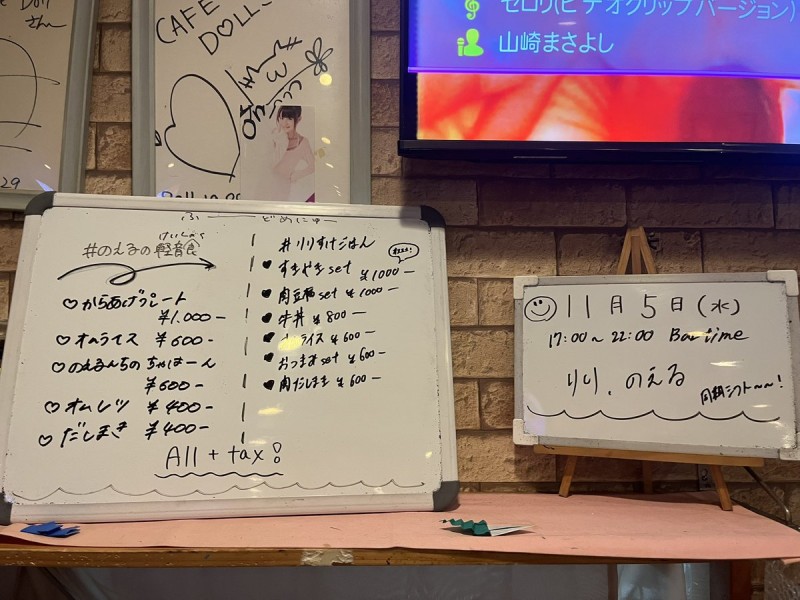 CAFE
DOLL
29
セロリ(ビデオクリップバージョン)
山崎まさよし
ふーどめにゅー
けいしょく
#のえるの軽音食
♡からあげプレート
¥1,000-
♡オムライス ¥600-
♡のえるんちの ちゃはーん
¥600-
♡オムレツ ¥400-
♡だしまき ¥400-
#りりすけごはん
♥すきやきset ¥1000-
♥肉豆腐set ¥1000-
♥牛丼 ¥800-
ライス ¥600-
♥おつまみset ¥600-
♥肉だしまき ¥600-
All + tax!
11月5日(水)
17:00~22:00 Bar time
りり、のえる
同期シフト~~!